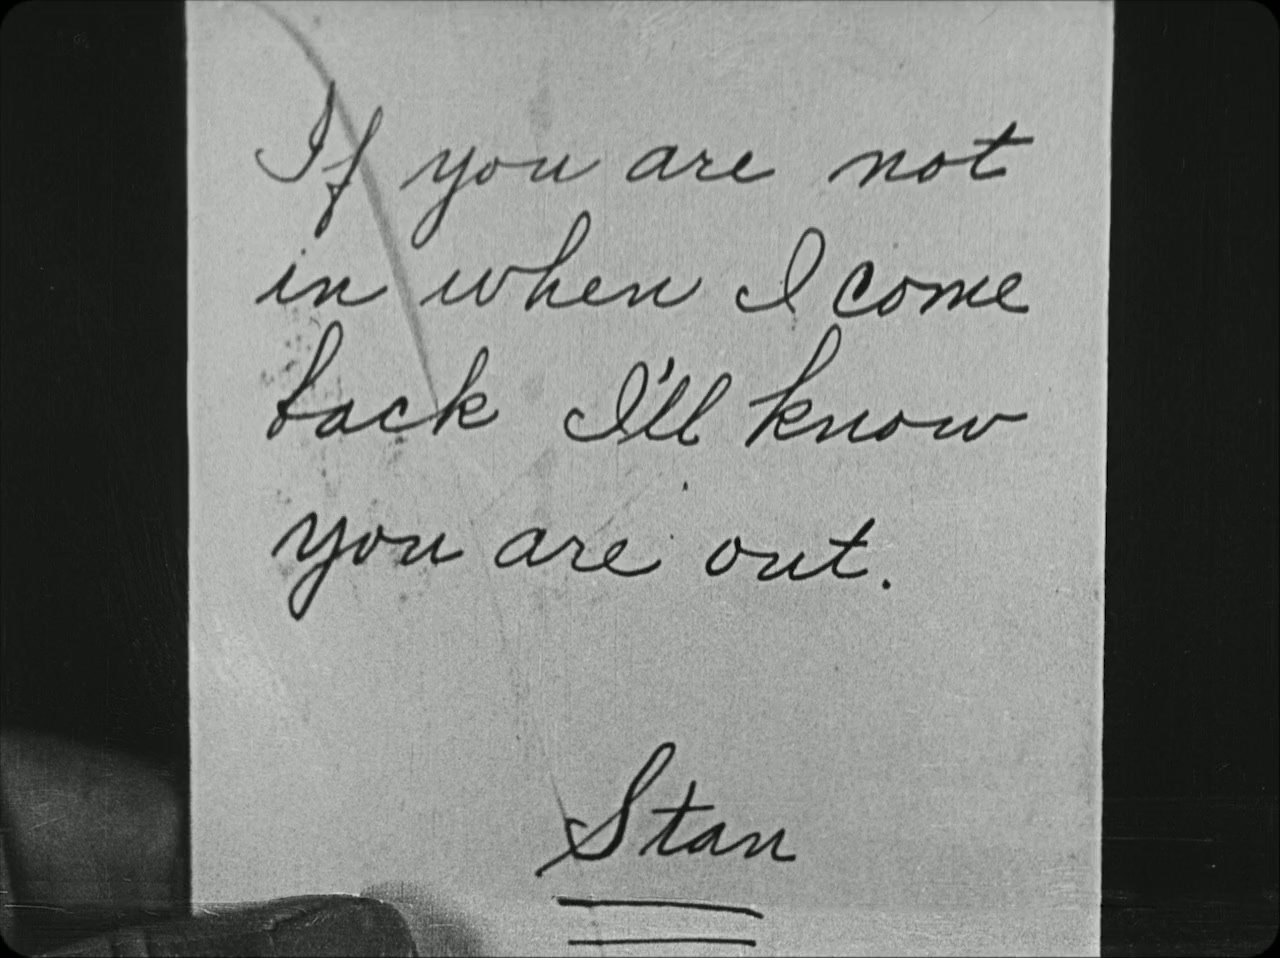 If you are not
in when I come
back I'll know
you are out.
Stan